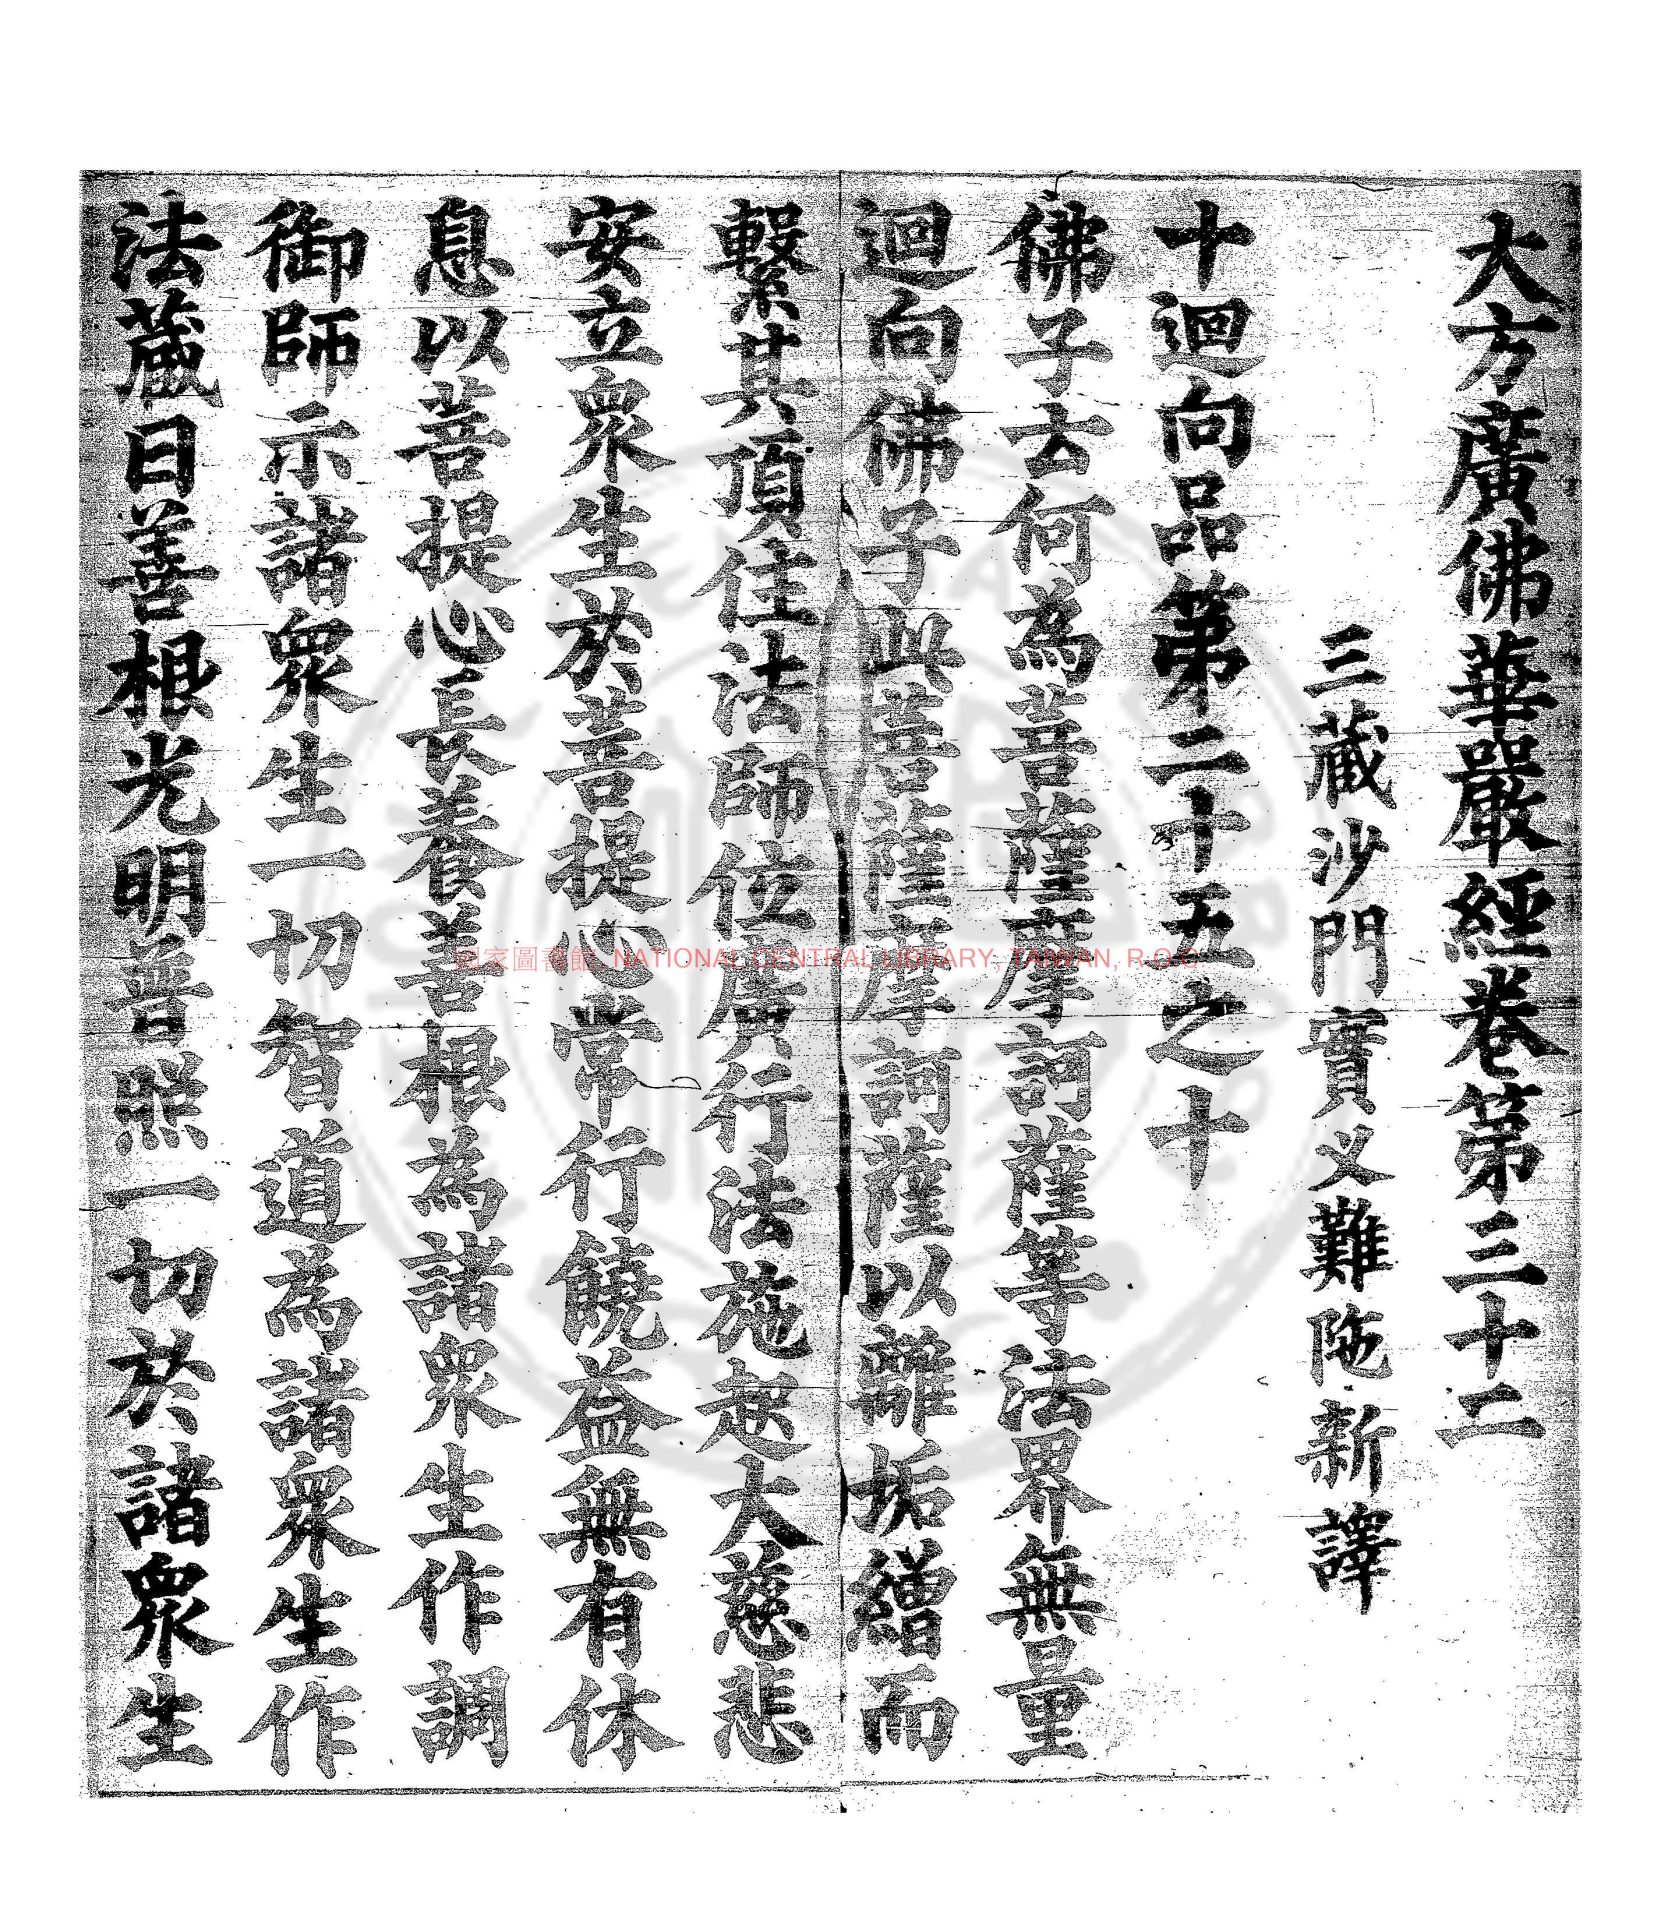 大方廣佛華嚴經卷第三十二
三藏沙門實义難陁新譯
十迴向品第二十五之十
佛子云何為菩薩摩訶薩等法界無量
迴向佛子此菩薩摩訶薩以離垢繒而
繫其頂住法師位廣行法施起大慈悲
安立眾生於菩提心常行饒益無有休
息以菩提心長養善根為諸眾生作調
御師示諸眾生一切智道為諸眾生作
法藏日善根光明普照一切於諸眾生
國家圖書館, NATIONAL CENTRAL LIBRARY, TAIWAN, R.O.C